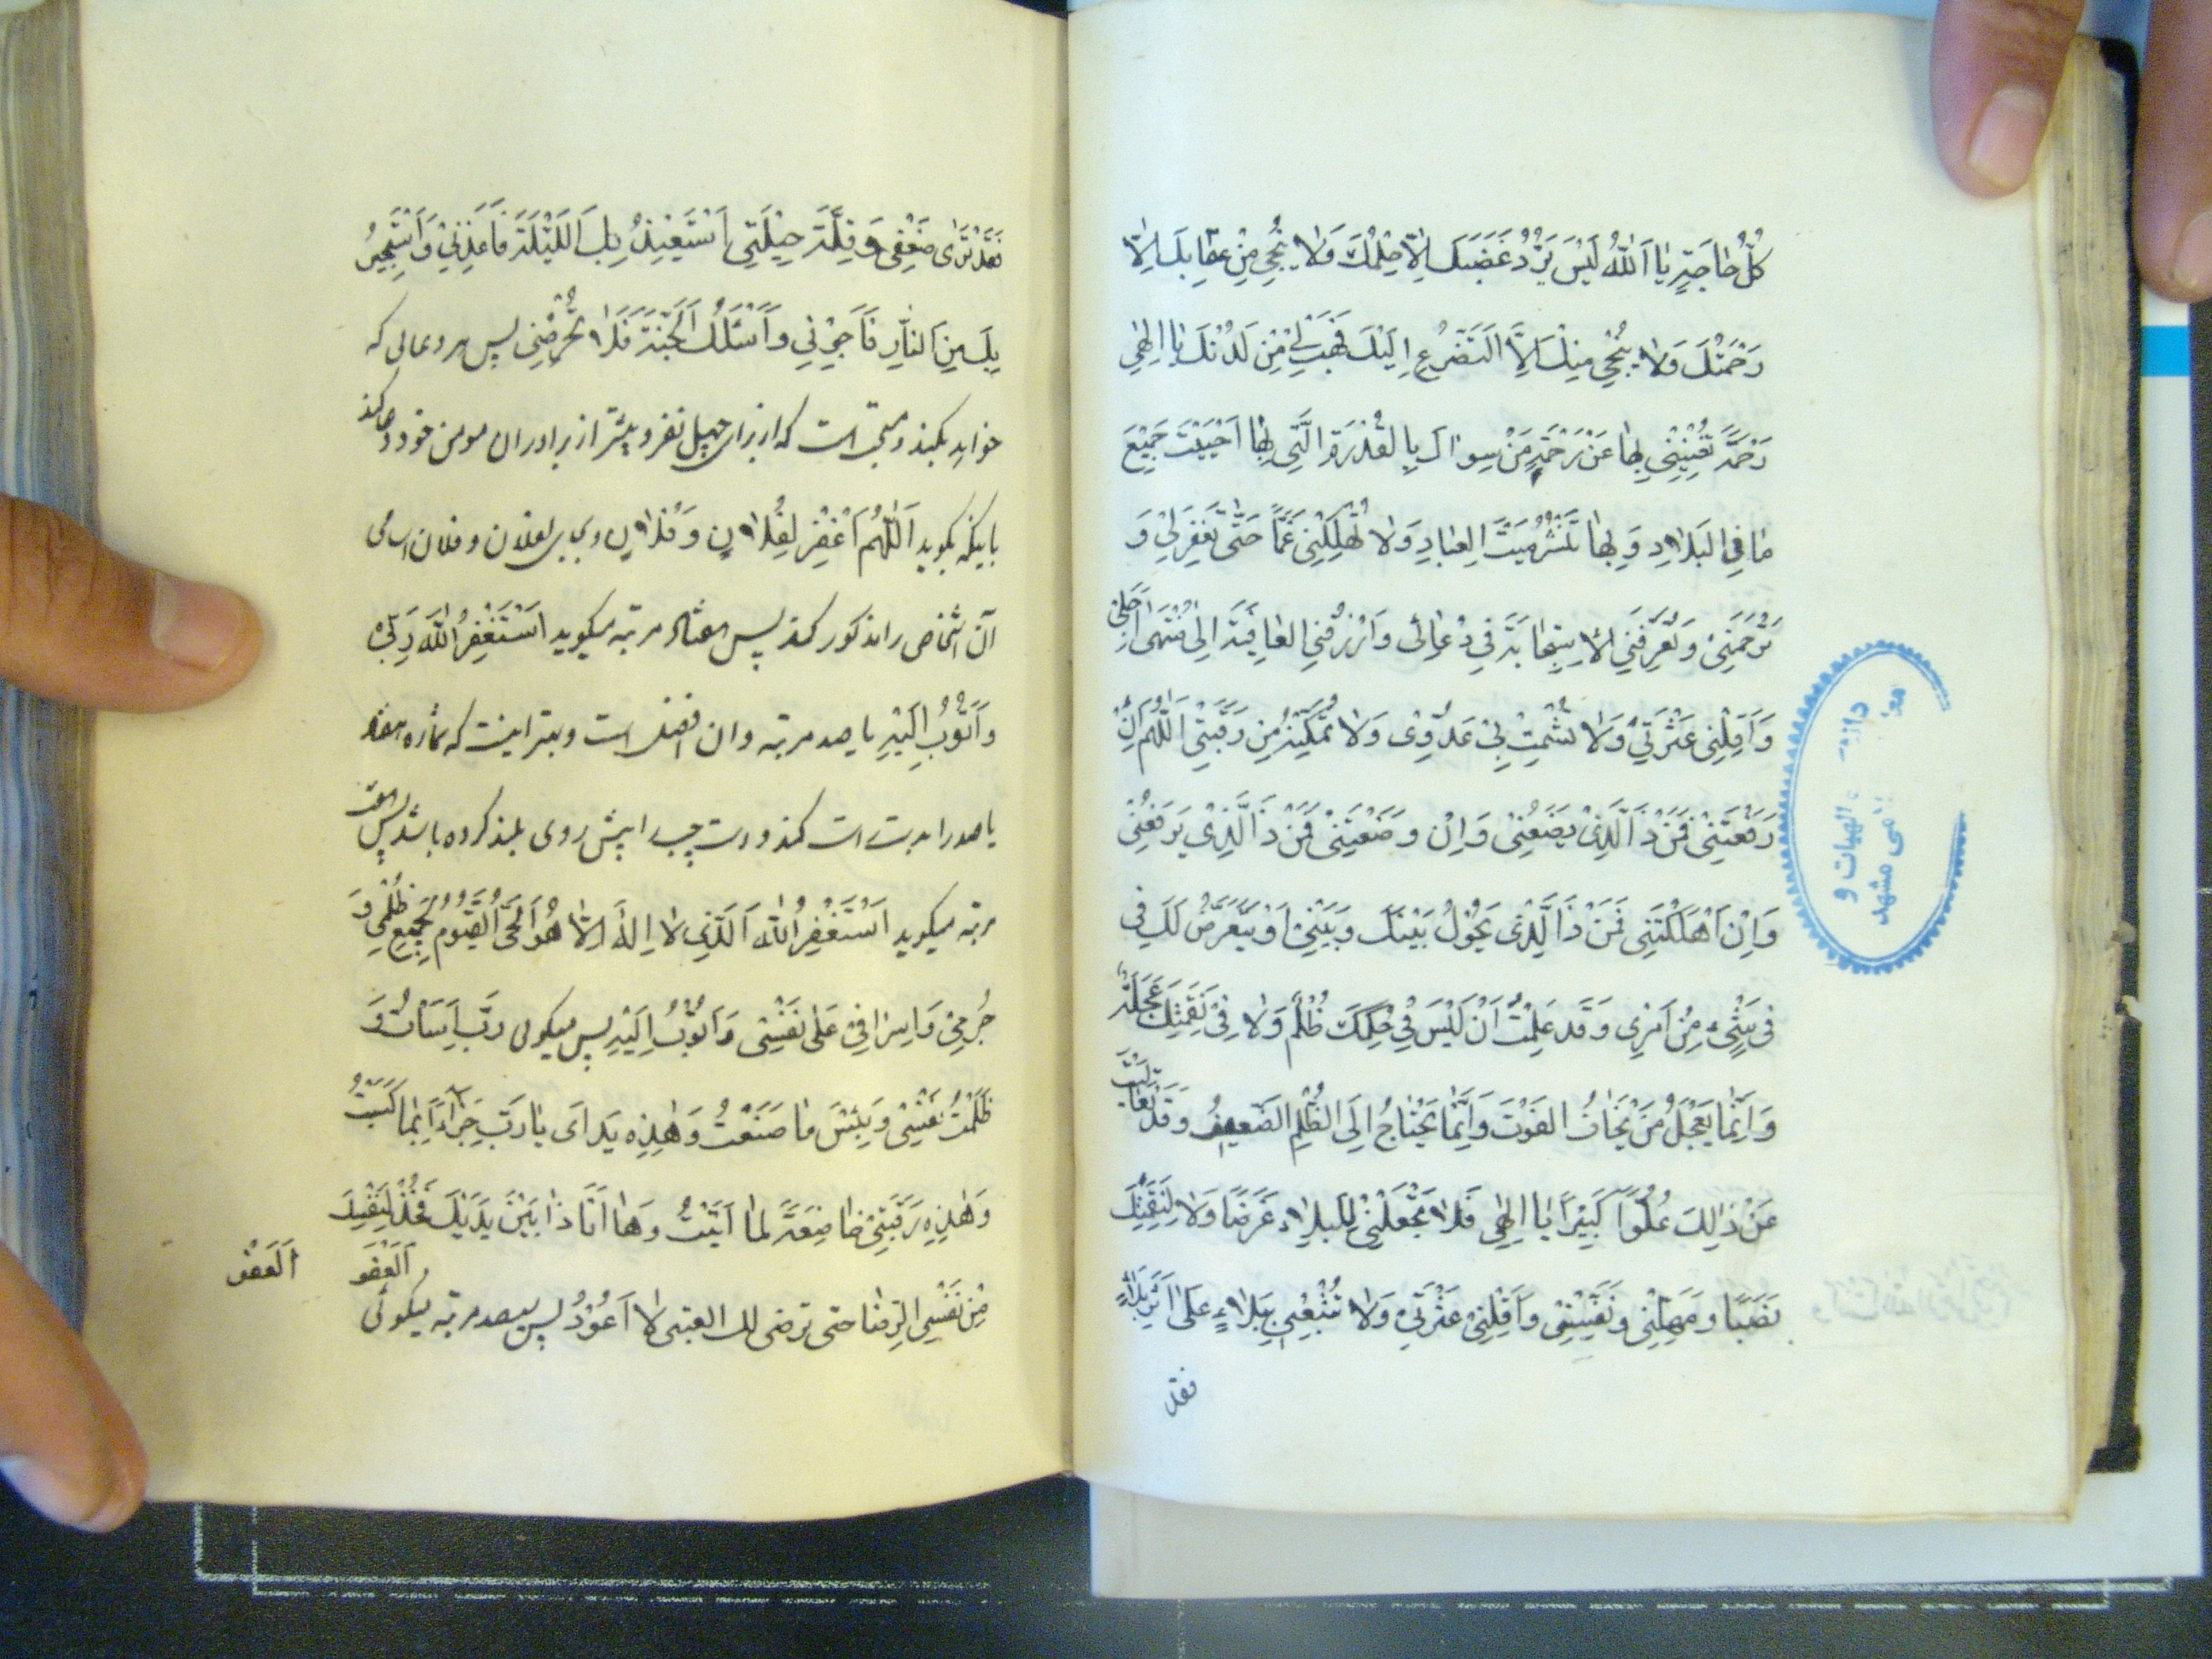 كُلِّ حَاجَةٍ يَا اَللّٰهُ لَيْسَ يَرُدُّ غَضَبَكَ اِلَّا حِلْمُكَ وَلَا يُنْجِى مِنْ عِقَابِكَ اِلَّا
رَحْمَتُكَ وَلَا يُنْجِى مِنْكَ اِلَّا التَّضَرُّعُ اِلَيْكَ فَهَبْ لِىْ مِنْ لَدُنْكَ يَا اِلٰهِى
رَحْمَةً تُغْنِيْنِىْ بِهَا عَنْ رَحْمَةِ مَنْ سِوَاكَ بِالْقُدْرَةِ الَّتِى بِهَا اَحْيَيْتَ جَمِيْعَ
مَا فِى الْبِلَادِ وَ بِهَا تَنْشُرُ مَيْتَ الْعِبَادِ وَلَا تُهْلِكْنِى غَمًّا حَتّٰى تَغْفِرَ لِىْ وَ
تَرْحَمَنِىْ وَتُعَرِّفَنِى الْاِسْتِجَابَةَ فِى دُعَائِى وَارْزُقْنِى الْعَافِيَةَ اِلىٰ مُنْتَهٰى اَجَلِىْ
وَاَقِلْنِى عَثْرَتِىْ وَلَا تُشْمِتْ بِىْ عَدُوِّىْ وَلَا تُمَكِّنْهُ مِنْ رَقَبَتِىْ اَللّٰهُمَّ اِنْ
رَفَعْتَنِىْ فَمَنْ ذَا الَّذِىْ يَضَعُنِىْ وَاِنْ وَضَعْتَنِىْ فَمَنْ ذَا الَّذِىْ يَرْفَعُنِىْ
وَاِنْ اَهْلَكْتَنِى فَمَنْ ذَا الَّذِىْ يَحُوْلُ بَيْنَكَ وَبَيْنِىْ اَوْ يَتَعَرَّضُ لَكَ فِى
فِى شَىْءٍ مِنْ اَمْرِى وَقَدْ عَلِمْتُ اَنْ لَيْسَ فِىْ حُكْمِكَ ظُلْمٌ وَلَا فِىْ نَقِمَتِكَ عَجَلَةٌ
وَاِنَّمَا يَعْجَلُ مَنْ يَخَافُ الْفَوْتَ وَاِنَّمَا يَحْتَاجُ اِلَى الظُّلْمِ الضَّعِيفُ وَقَدْ تَعَالَيْتَ
عَنْ ذٰلِكَ عُلُوًّا كَبِيْرًا يَا اِلٰهِى فَلَا تَجْعَلْنِىْ لِلْبَلَاءِ غَرَضًا وَلَا لِنَقِمَتِكَ
نَصَبًا وَمَهِّلْنِى وَنَفِّسْنِىْ وَاَقِلْنِىْ عَثْرَتِىْ وَلَا تُتْبِعْنِى بِبَلَاءٍ عَلىٰ اَثَرِ بَلَاءٍ
فقد
الهيات و
مى مشهد
فَقَدْ تَرٰى ضَعْفِى وَ قِلَّةَ حِيْلَتِى اَسْتَعِيْذُ بِكَ اللَّيْلَةَ فَاَعِذْنِىْ وَاَسْتَجِيْرُ
بِكَ مِنَ النَّارِ فَاَجِرْنِى وَاَسْئَلُكَ الْجَنَّةَ فَلَا تَحْرِمْنِى پس هر دعائى كه
خواهد بكند و است كه از براى چهل نفر و بيشتر از برادران مومن خود دعا كند
باينكه بگويد اَللّٰهُمَّ اغْفِرْ لِفُلَانٍ وَفُلَانٍ و بجاى فلان و فلان اسامى
آن اشخاص را مذكور كند پس هفتاد مرتبه ميگويد اَسْتَغْفِرُ اللّٰهَ رَبِّىْ
وَاَتُوْبُ اِلَيْهِ يا صد مرتبه و ان افضل است و بهتر اينست كه شماره هفتاد
يا صد را بدست راست كند و دست چپ را پيش روى بلند كرده باشد پس هفت
مرتبه ميگويد اَسْتَغْفِرُ اللّٰهَ الَّذِى لَا اِلٰهَ اِلَّا هُوَ الْحَىُّ الْقَيُّومُ لِجَمِيعِ ظُلْمِى وَ
جُرْمِىْ وَاِسْرَافِىْ عَلىٰ نَفْسِىْ وَاَتُوْبُ اِلَيْهِ پس ميگوئى رَبِّ اَسَأْتُ وَ
ظَلَمْتُ نَفْسِىْ وَبِئْسَ مَا صَنَعْتُ وَهٰذِهِ يَدَاىَ يَا رَبِّ جَزَاءً بِمَا كَسَبْتُ
وَهٰذِهِ رَقَبَتِىْ خَاضِعَةً لِمَا اَتَيْتُ وَهَا اَنَا ذَا بَيْنَ يَدَيْكَ فَخُذْ لِنَفْسِكَ
مِنْ نَفْسِى الرِّضَا حتى ترضى لك العتبى لَا اَعُوْدُ پس سيصد مرتبه ميگوئى اَلْعَفْوَ اَلْعَفْوَ